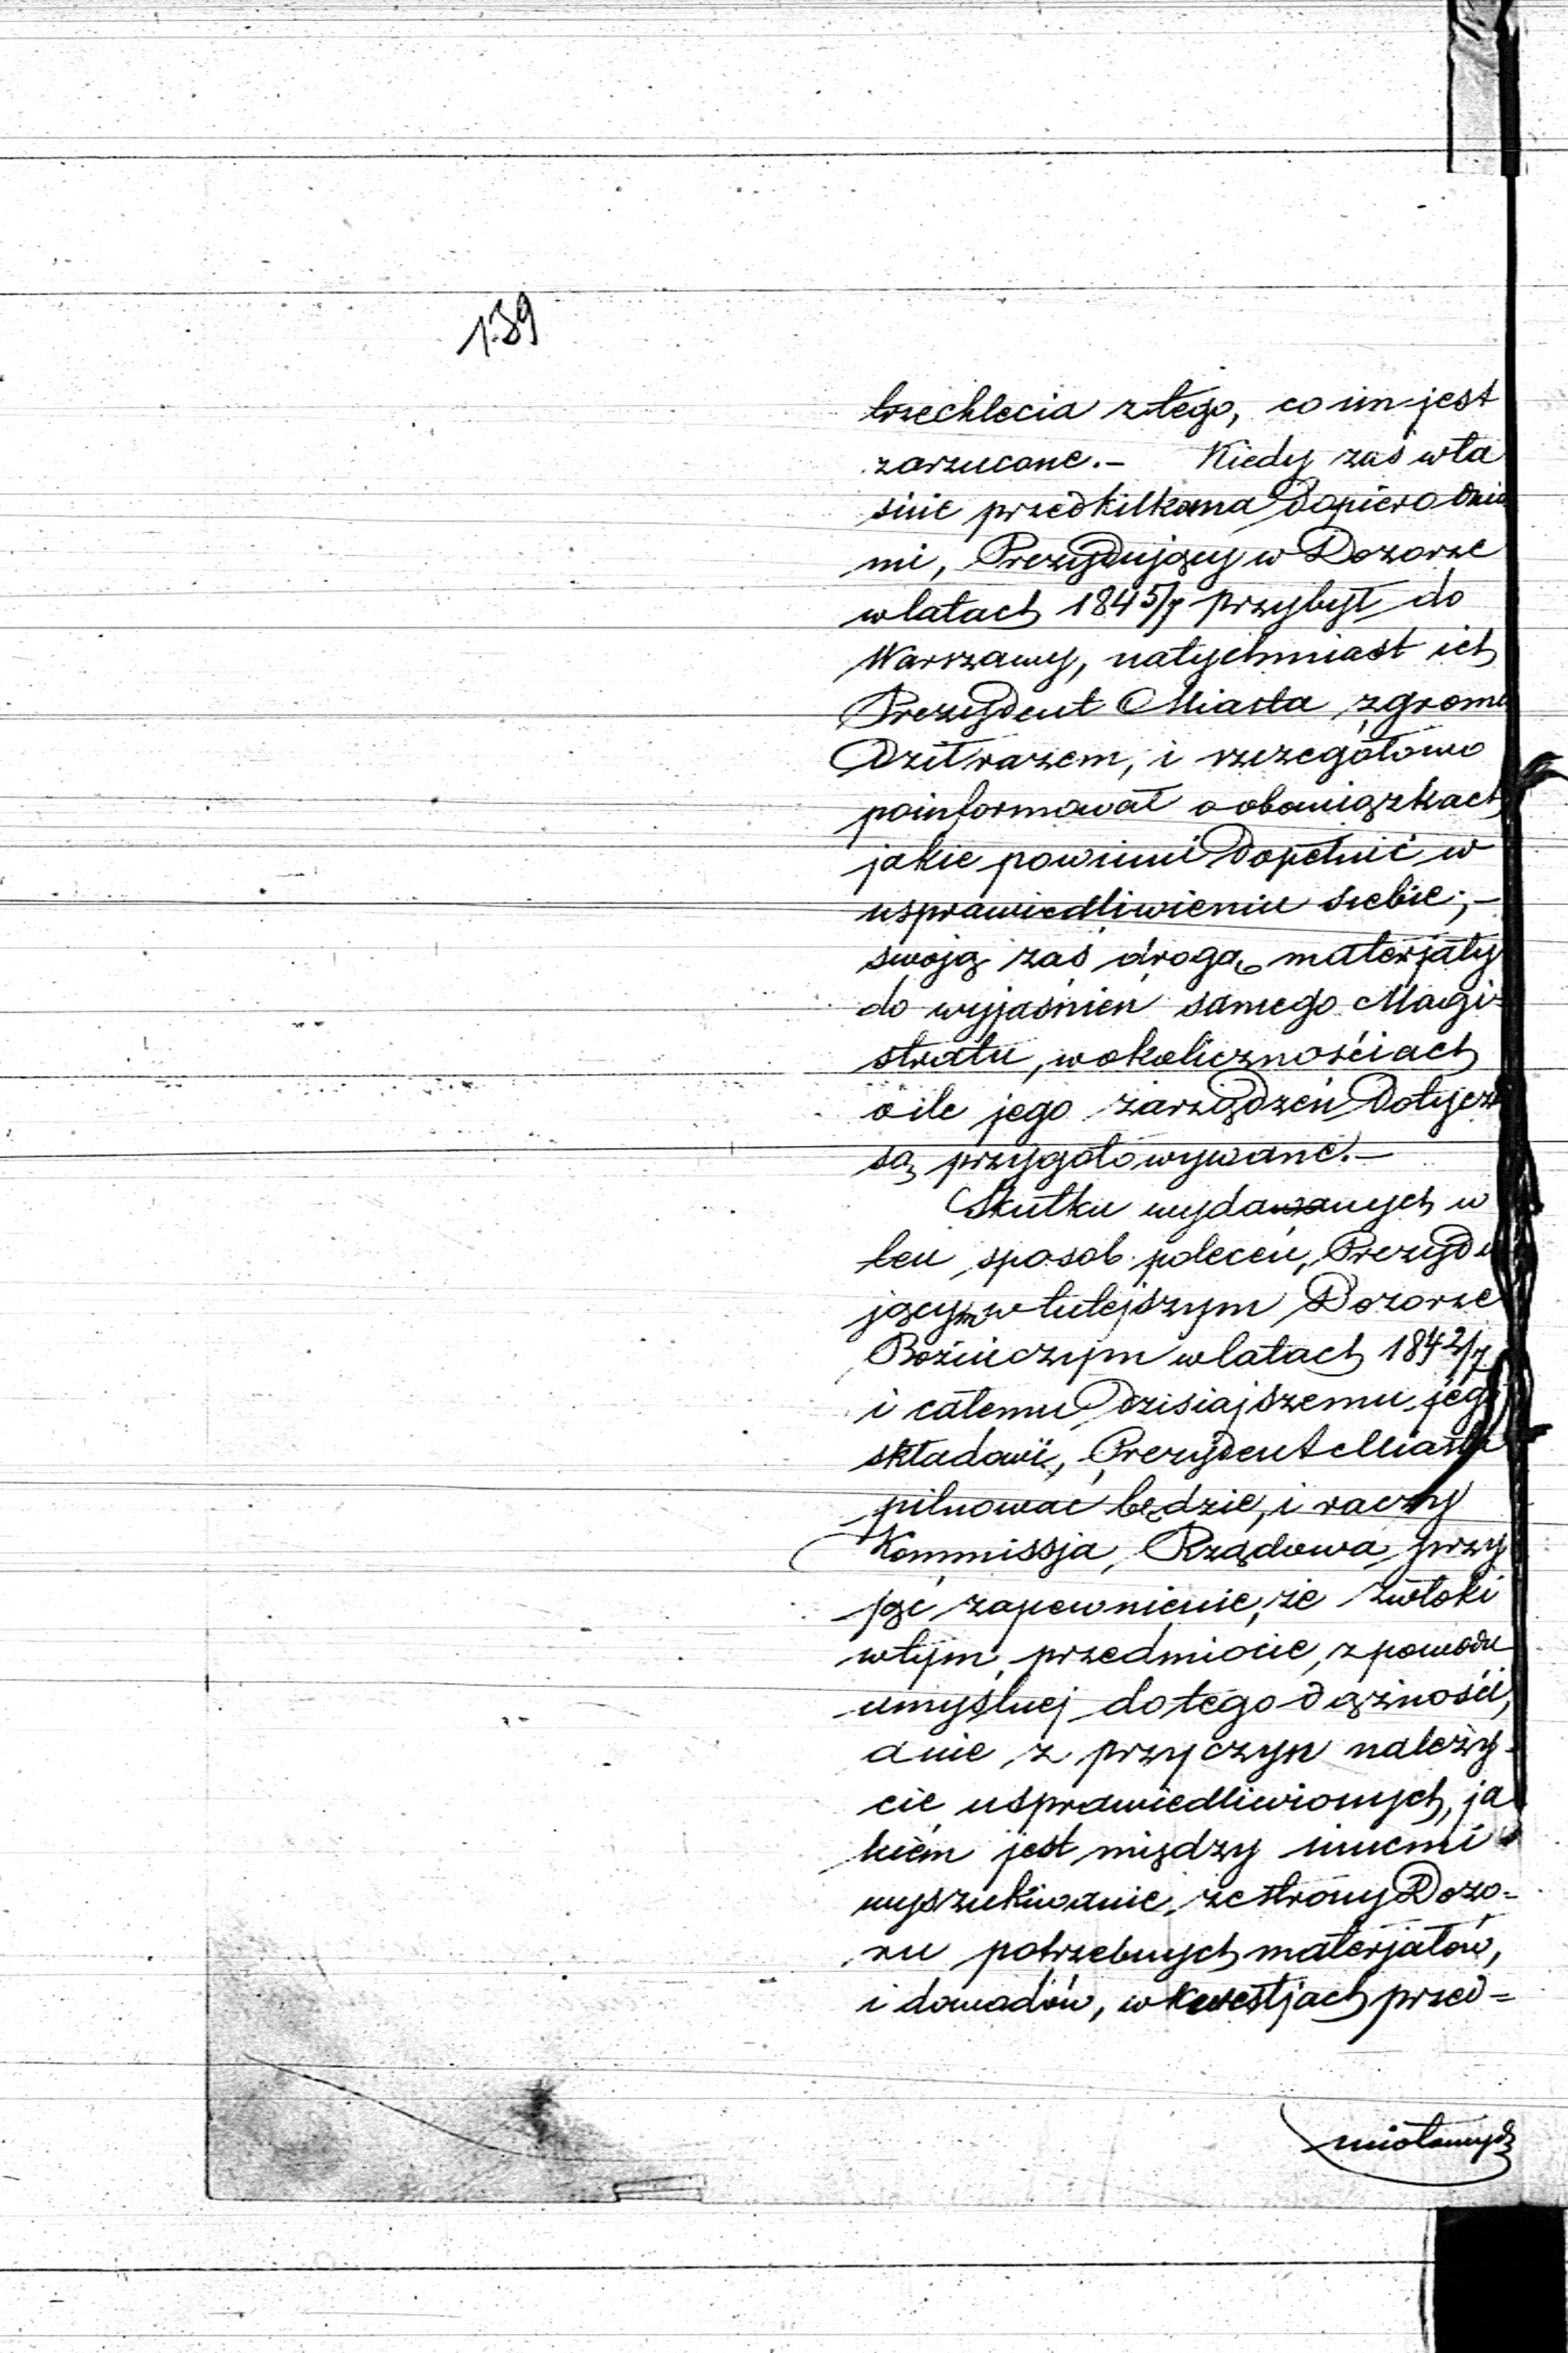 139
trzechlecia z tego, co im jest
zarzucone.— Kiedy zaś wła
śnie przed kilkoma dopiero dnia
mi, Prezydujący w Dozorze
w latach 1845/7 przybył do
Warszawy, natychmiast ich
Prezydent Miasta zgroma
dził razem, i szczegółowo
poinformował o obowiązkach
jakie powinni dopełnić w
usprawiedliwieniu siebie;—
swoją zaś drogą materjały
do wyjaśnień samego Magi-
stratu, w okolicznościach
o ile jego zarządzeń dotycz
są przygotowywane.—
Skutku wydawanych w
ten sposób poleceń, Prezydu
jącym w tutejszym Dozorze
Bożniczym w latach 1842/7
i całemu dzisiajszemu jego
składowi, Prezydent Miasta
pilnować będzie, i raczy
Kommissja Rządowa przy
jąć zapewnienie, że zwłoki
w tym przedmiocie, z powodu
umyślnej do tego dążności,
a nie z przyczyn należy-
cie usprawiedliwionych, ja
kiem jest między innemi
wyszukiwanie ze strony Dozo=
ru potrzebnych materjałów,
i dowodów, w kwestjach przed=
miotowych